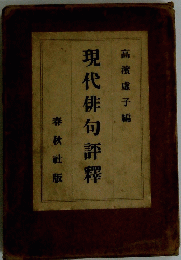 高濱虚子編
現代俳句評釋
春秋社版